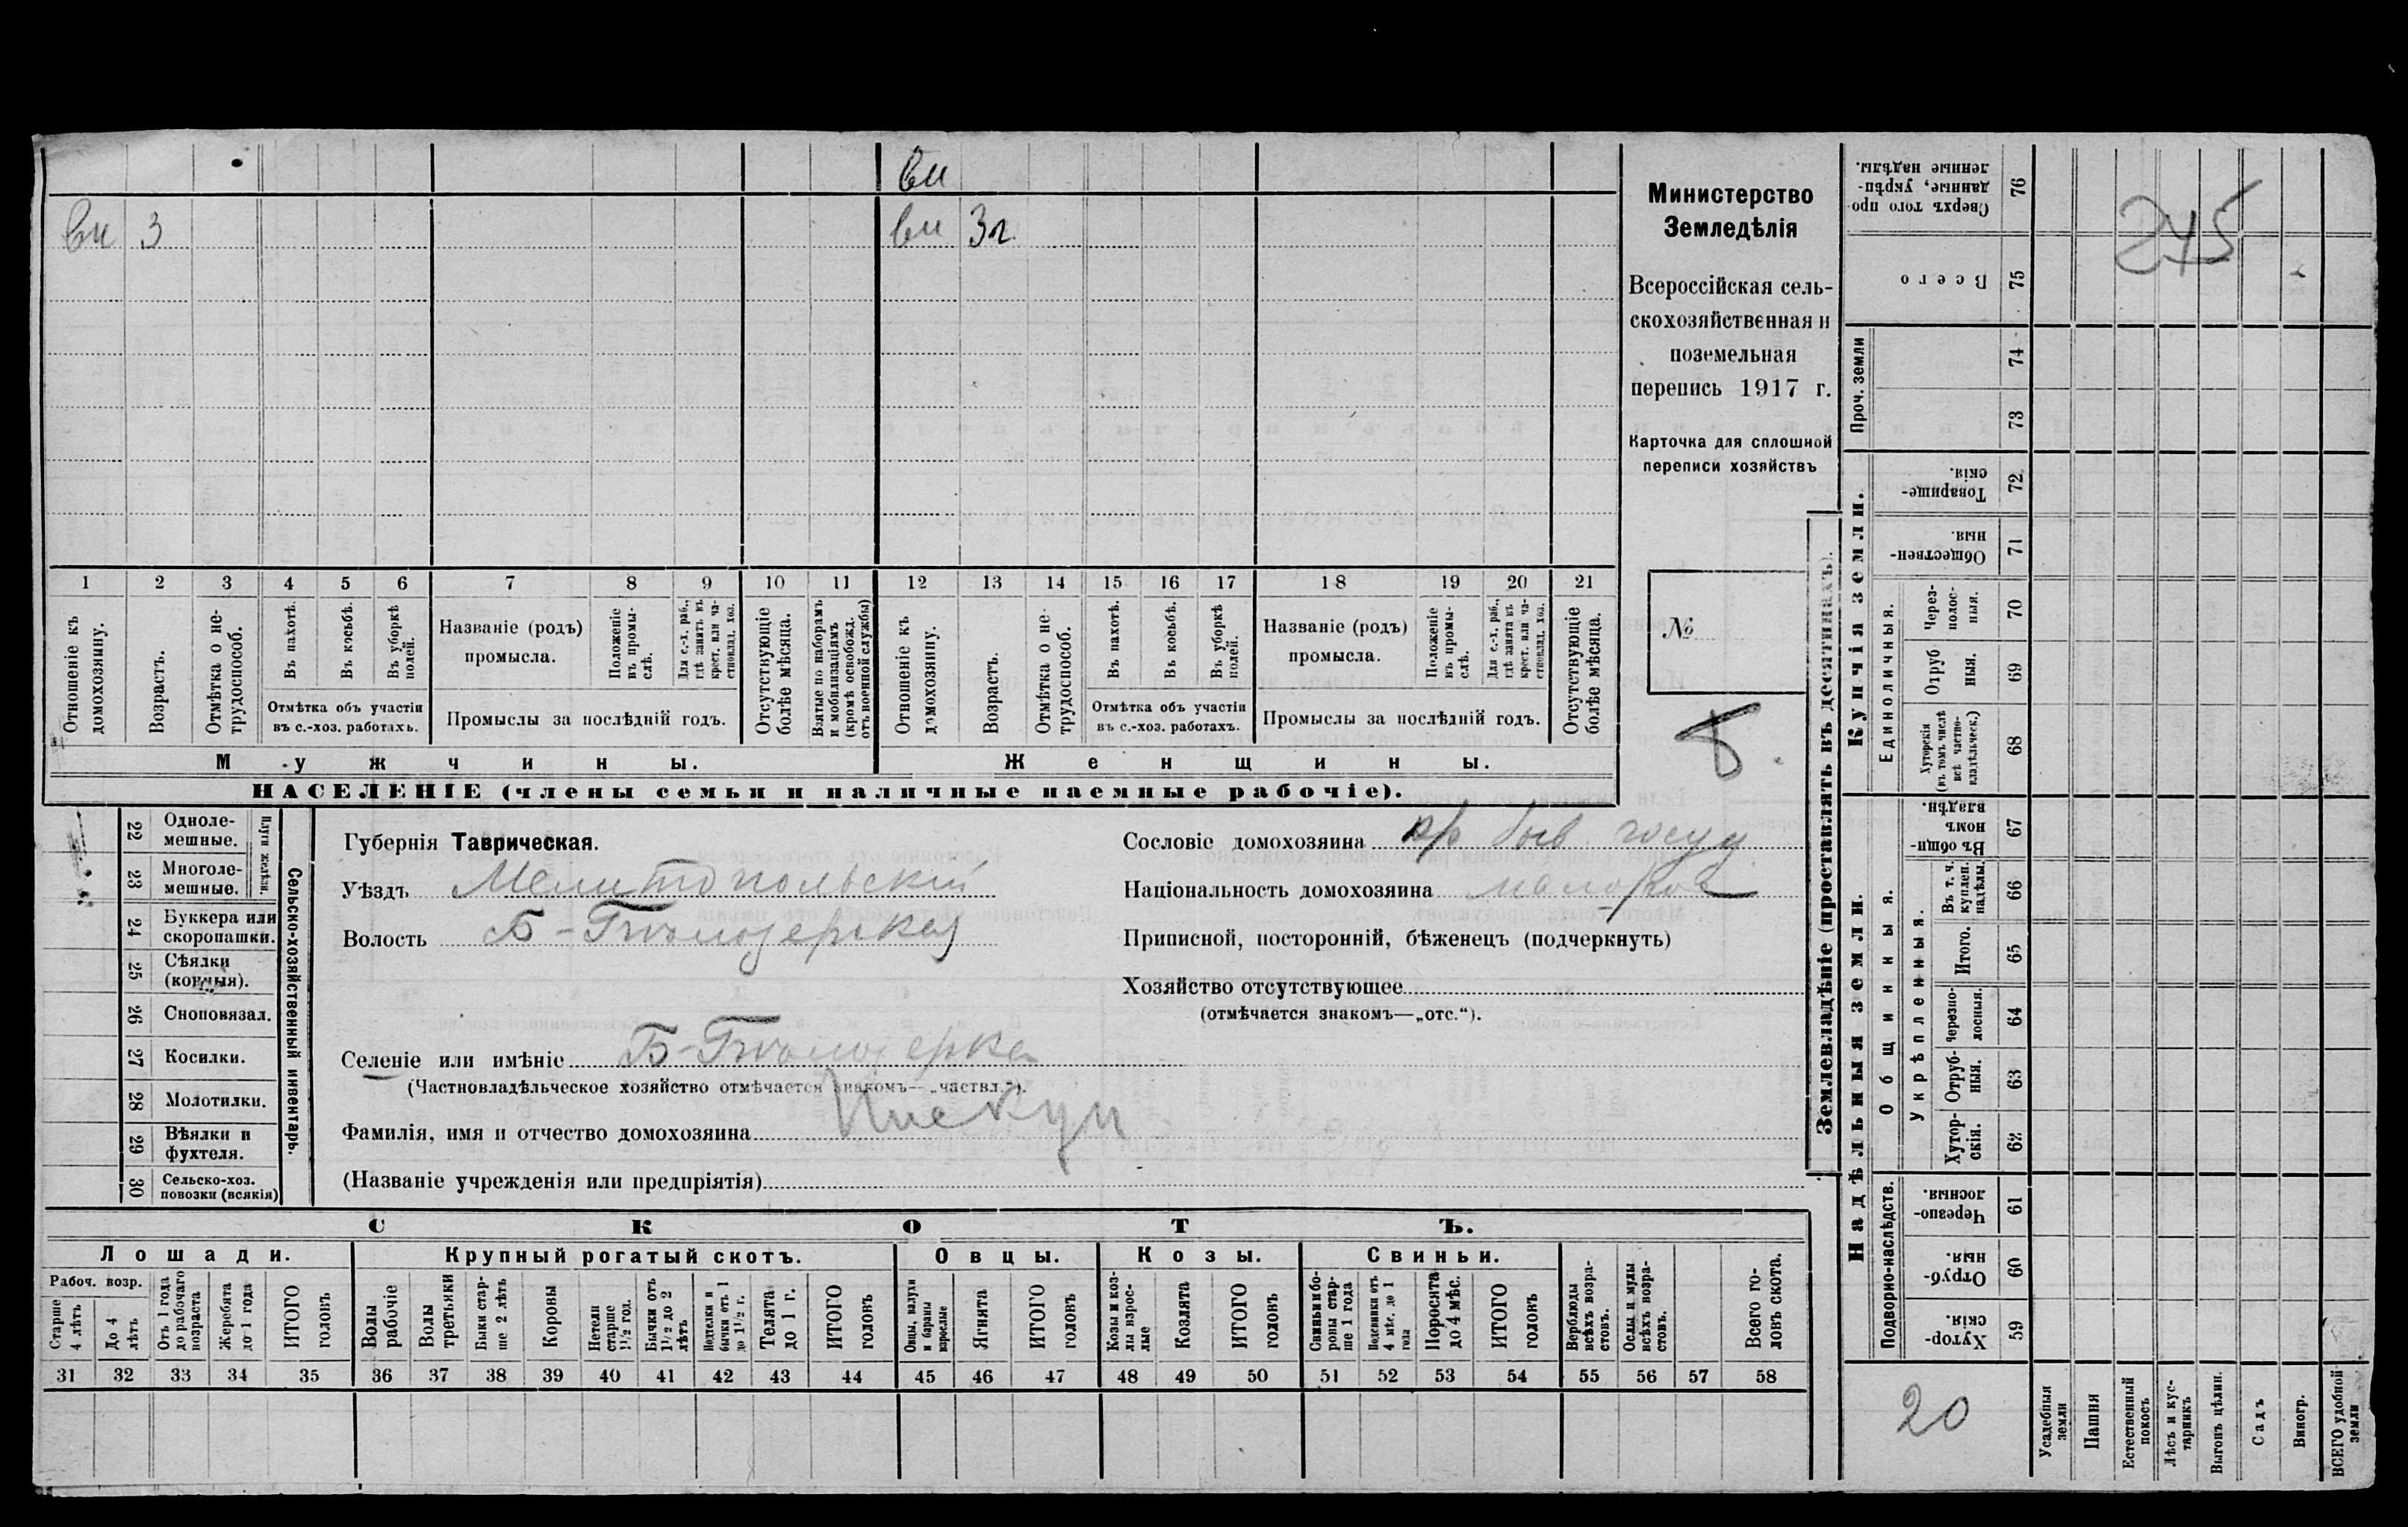 вн
вн 3 вн 3 г.
1 2 3 4 5 6 7 8 9 10 11 12 13 14 15 16 17 18 19 20 21
Отношеніе къ домохозяину.
Возрастъ.
Отмѣтка о не-трудоспособ.
Въ пахотѣ.
Въ косьбѣ.
Въ уборкѣ полей.
Отмѣтка объ участіи
въ с.-хоз. работахъ.
Названіе (родъ)
промысла.
Положеніе въ промы-слѣ.
Для с.-х. раб., гдѣ занятъ въ крест. или ча-стновлад. хоз.
Промыслы за послѣдній годъ.
Отсутствующіе болѣе мѣсяца.
Взятые по наборамъ и мобилизаціямъ (кромѣ освобожд. отъ военной службы)
Отношеніе къ домохозяину.
Возрастъ.
Отмѣтка о не-трудоспособ.
Въ пахотѣ.
Въ косьбѣ.
Въ уборкѣ полей.
Отмѣтка объ участіи
въ с.-хоз. работахъ.
Названіе (родъ)
промысла.
Положеніе въ промы-слѣ.
Для с.-х. раб., гдѣ занята въ крест. или ча-стновлад. хоз.
Промыслы за послѣдній годъ.
Отсутствующіе болѣе мѣсяца.
Мужчины.
Женщины.
НАСЕЛЕНІЕ (члены семьи и наличные наемные рабочіе).
Министерство
Земледѣлія
Всероссійская сель-
скохозяйственная и
поземельная
перепись 1917 г.
Карточка для сплошной
переписи хозяйствъ
№
8.
22 Одноле-мешные.
23 Многоле-мешные.
Плуги желѣзн.
24 Буккера или скоропашки.
25 Сѣялки (конныя).
26 Сноповязал.
27 Косилки.
28 Молотилки.
29 Вѣялки и фухтеля.
30 Сельско-хоз. повозки (всякія)
Сельско-хозяйственный инвентарь.
Губернія Таврическая.
Уѣздъ Мелитопольскій
Волость Б-Бѣлозерская
Селеніе или имѣніе Б-Бѣлозерка
(Частновладѣльческое хозяйство отмѣчается знакомъ—„частвл.“).
Фамилія, имя и отчество домохозяина Пискун
(Названіе учрежденія или предпріятія)
Сословіе домохозяина кр быв. госуд.
Національность домохозяина малорос
Приписной, посторонній, бѣженецъ (подчеркнуть)
Хозяйство отсутствующее
(отмѣчается знакомъ—„отс.“).
СКОТЪ.
Лошади. Крупный рогатый скотъ. Овцы. Козы. Свиньи.
Рабоч. возр.
Старше 4 лѣтъ
До 4 лѣтъ
Отъ 1 года до рабочаго возраста
Жеребята до 1 года
ИТОГО головъ
Волы рабочіе
Волы третьяки
Быки стар-ше 2 лѣтъ
Коровы
Нетели старше 1½ год.
Бычки отъ 1½ до 2 лѣтъ
Подтелки и бычки отъ 1 до 1½ г.
Телята до 1 г.
ИТОГО головъ
Овцы, валухи и бараны взрослые
Ягнята
ИТОГО головъ
Козы и коз-лы взрос-лые
Козлята
ИТОГО головъ
Свиньи и бо-ровы стар-ше 1 года
Подсвинки отъ 4 мѣс. до 1 года
Поросята до 4 мѣс.
ИТОГО головъ
Верблюды всѣхъ возра-стовъ.
Ослы и мулы всѣхъ возра-стовъ.
Всего го-ловъ скота.
31 32 33 34 35 36 37 38 39 40 41 42 43 44 45 46 47 48 49 50 51 52 53 54 55 56 57 58
Землевладѣніе (проставлять въ десятинахъ).
Сверхъ того про-данные, укрѣп-ленные надѣлы. 76
245
Всего 75
Проч. земли
74
73
Купчія земли.
Товарище-скія. 72
Обществен-ныя. 71
Единоличныя.
Через-полос-ныя. 70
Отруб ныя. 69
Хуторскія (въ томъ числѣ всѣ частно-владѣльческ.) 68
Надѣльныя земли.
Общинныя.
Въ общин-номъ владѣн. 67
Укрѣпленныя.
Въ т. ч. куплен. надѣлы. 66
Итого. 65
Черезпо-лосныя. 64
Отруб-ныя. 63
Хутор-скія. 62
Подворно-наслѣдств.
Черезпо-лосныя. 61
Отруб-ныя. 60
Хутор-скія. 59
20
Усадебныя земли
Пашня
Естественный покосъ
Лѣсъ и кус-тарникъ
Выгонъ цѣлин.
Садъ
Виногр.
ВСЕГО удобной земли